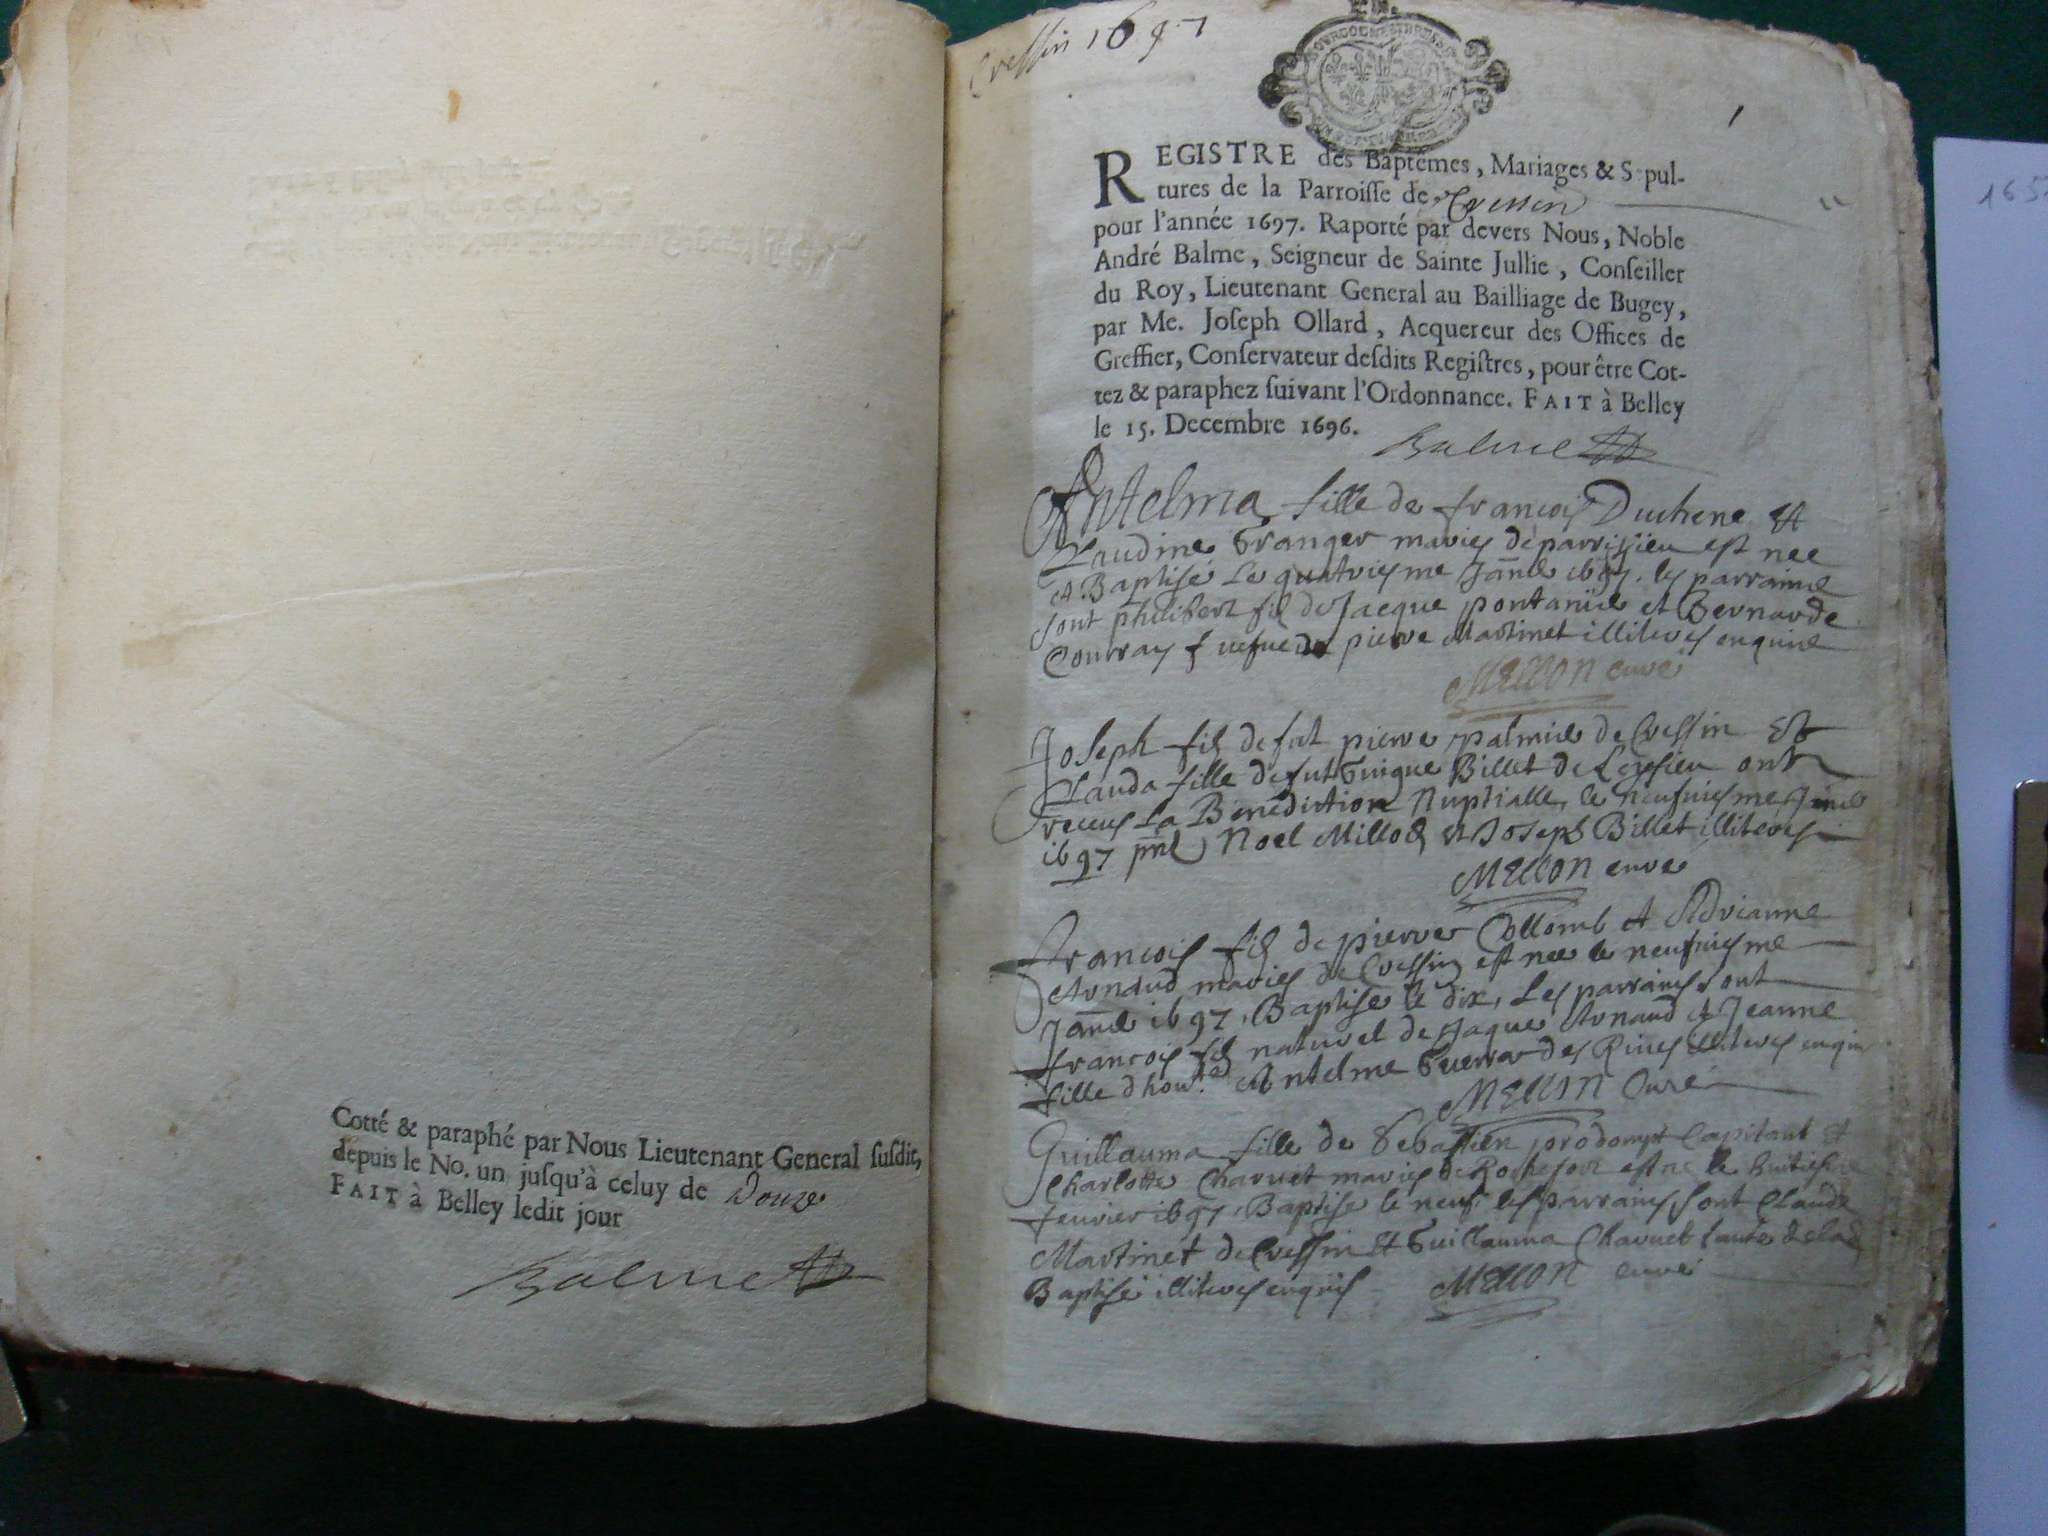 Cotté & paraphé par Nous Lieutenant General susdit,
depuis le No. un jusqu'à celuy de Douze
FAIT à Belley ledit jour
Balme
Cressin 1697
1
REGISTRE des Baptêmes, Mariages & Sepul-
tures de la Parroisse de Cressin
pour l'année 1697. Raporté par devers Nous, Noble
André Balme, Seigneur de Sainte Jullie, Conseiller
du Roy, Lieutenant General au Bailliage de Bugey,
par Me. Joseph Ollard, Acquereur des Offices de
Greffier, Conservateur desdits Registres, pour être Cot-
tez & paraphez suivant l'Ordonnance. FAIT à Belley
le 15. Decembre 1696.
Balme
Antelma fille de francois Duchene et
Claudine Granger maries de parrissieu est nee
et Baptisé Le quatriesme Janvé 1697. les parrains
sont philibert fils de Jacque pontanié et Bernarde
vefue de pierre Martinet illiteres enquis
Mellon cure
Joseph fils de fut pierre palmie de Cressin Et
Clauda fille de fut Guigue Billet de ont
receus La Benediction Nuptialle, le neufuiesme
1697 Noel Millod et Joseph Billet illiteres
Mellon cure
francois fils de pierre Collomb et Adrianne
Arnaud maries de Cressin est nee le neufuiesme
Janvé 1697, Baptise le dix, Les parrains sont
francois fils naturel de Jaque Arnaud et Jeanne
fille d'hon. Antelme Guerra des Rives illiteres enquis
Mellon Curé
Guillauma fille de Sebastien prodompt Capitant et
Charlotte Charuet maries de Rochefort est ne le huitiesme
feurier 1697, Baptise le neuf les parrains sont Claude
Martinet de Cressin et Guillauma Charuet tante de la
Baptisé illiteres enquis Mellon cure
165